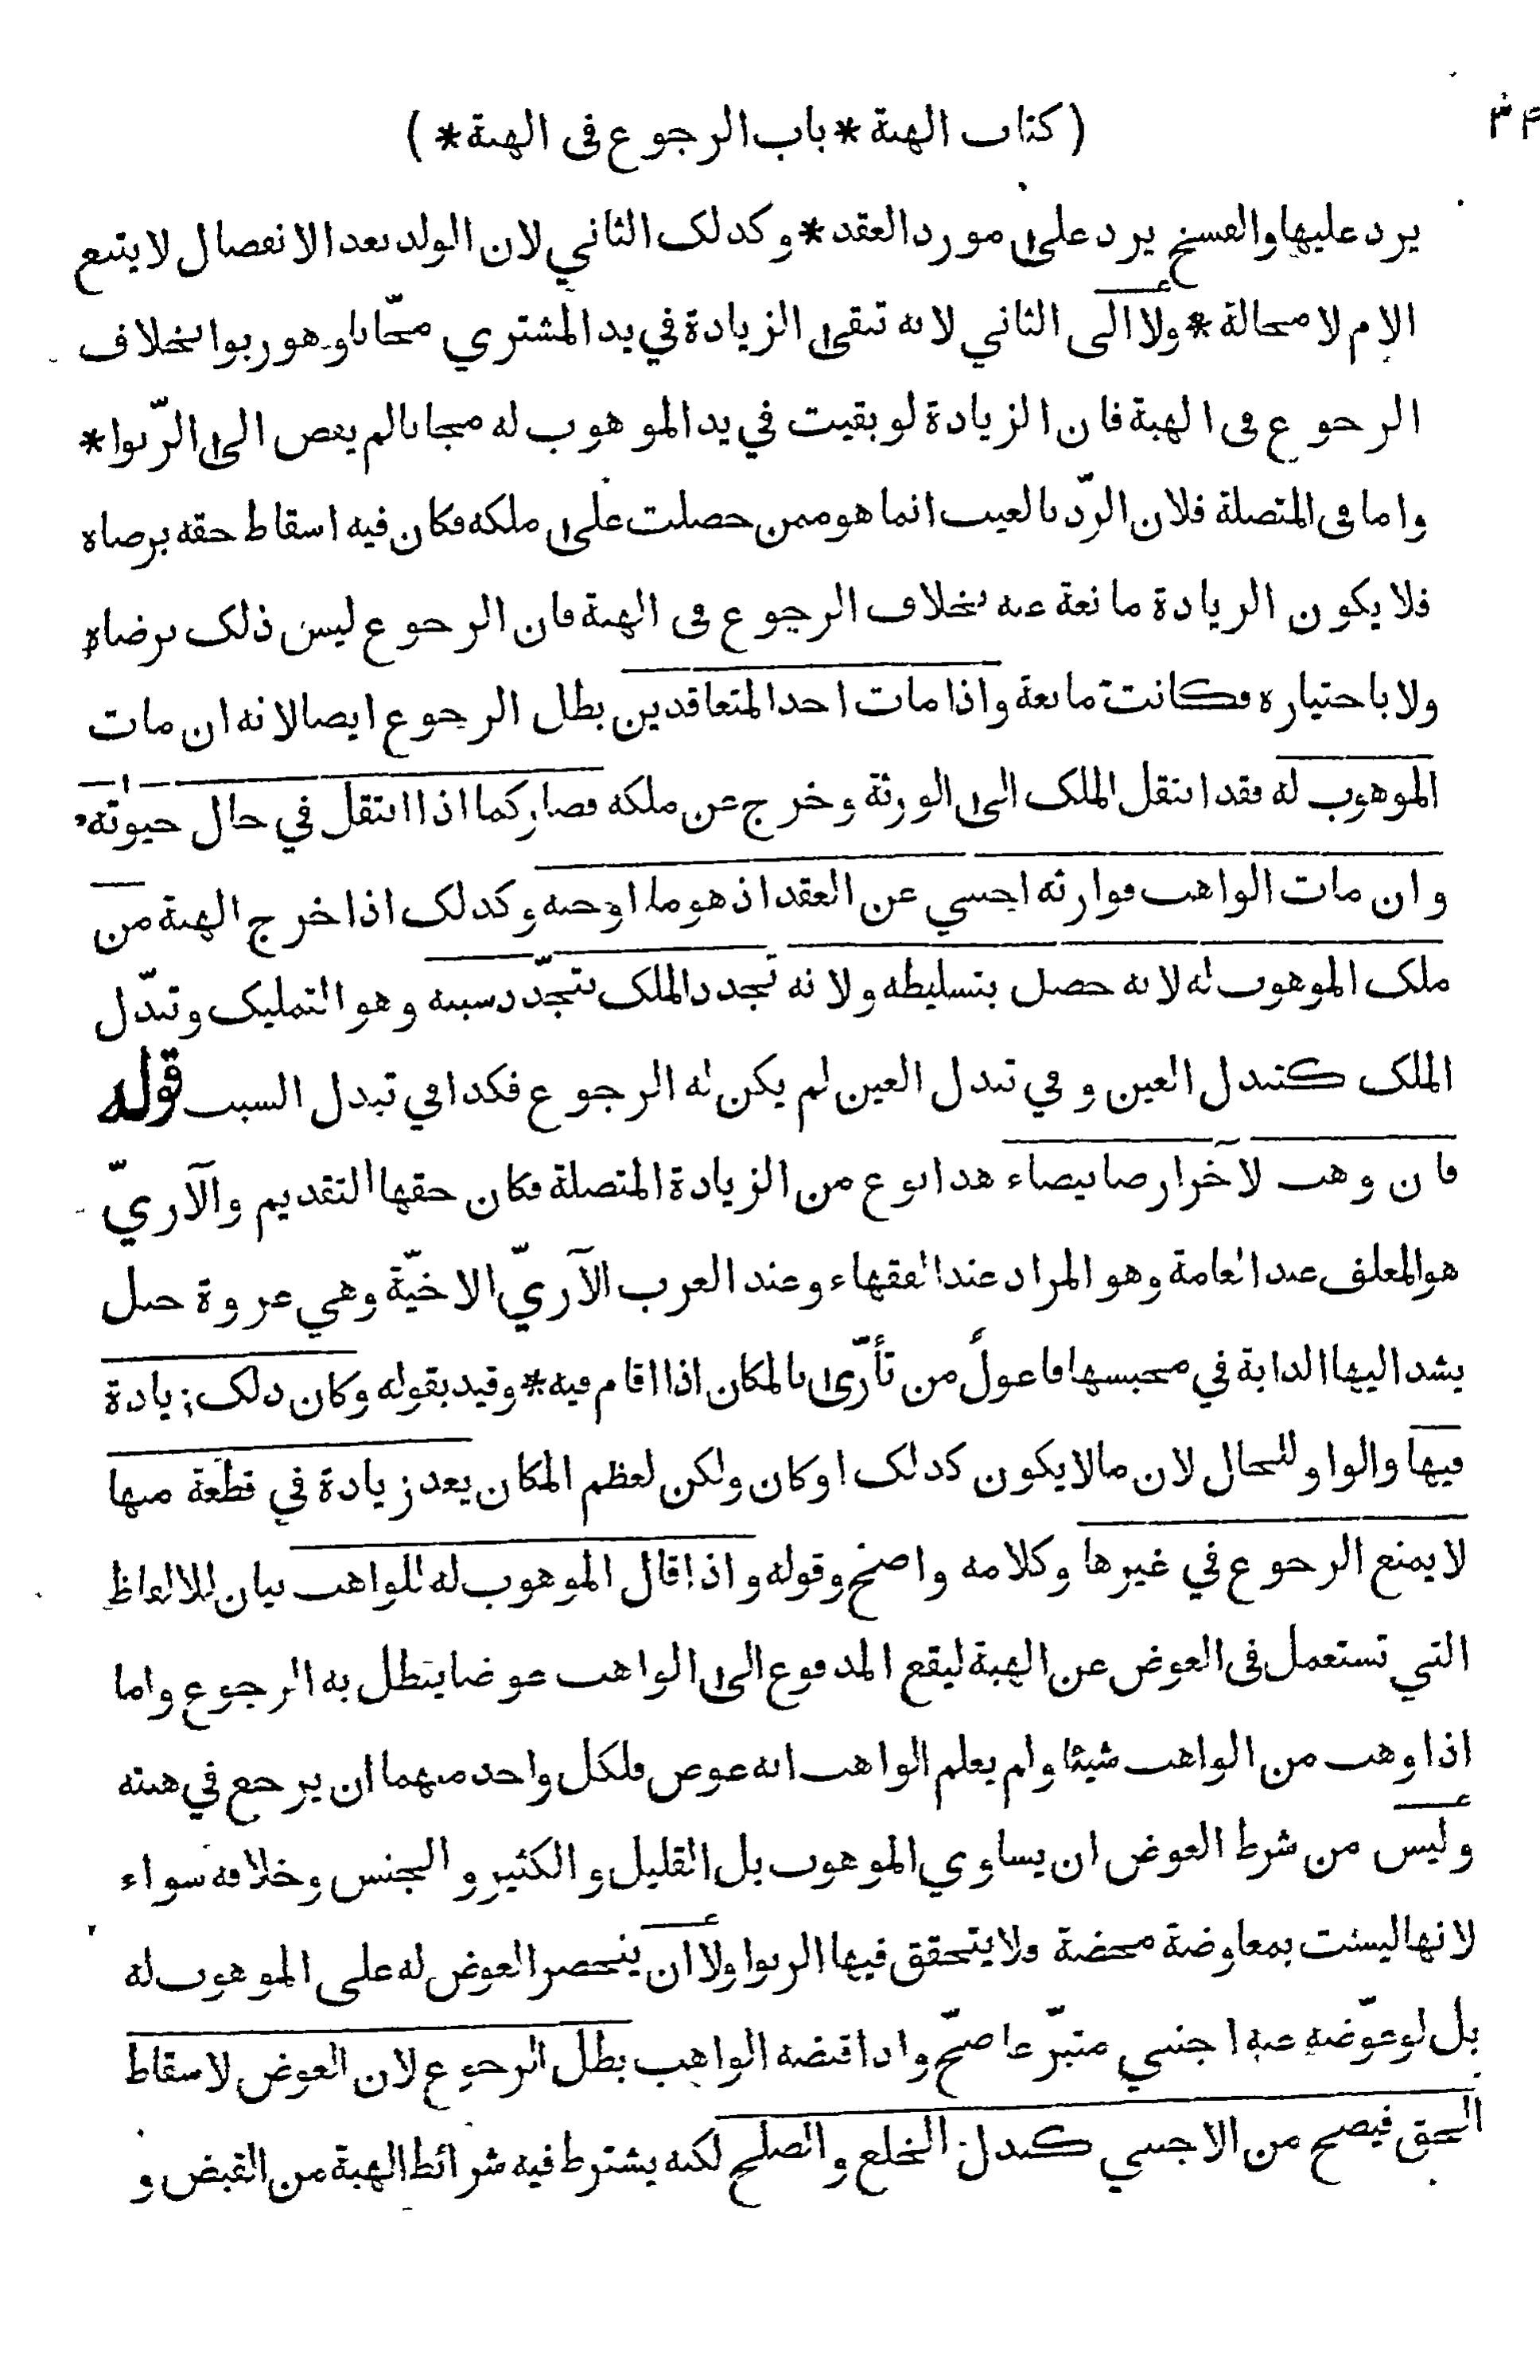 ۳۴
( كتاب الهبة * باب الرجوع فى الهبة * )
يرد عليها والفسخ يرد على مورد العقد * وكذلك الثاني لان الولد بعد الانفصال لا يتبع
الام لا محالة * ولا الى الثاني لانه تبقى الزيادة في يد المشتري مجّانا وهو ربوا بخلاف
الرجوع فى الهبة فان الزيادة لو بقيت في يد الموهوب له مجانا لم يفض الى الرّبوا *
واما فى المتصلة فلان الردّ بالعيب انما هو ممن حصلت على ملكه فكان فيه اسقاط حقه برضاه
فلا يكون الزيادة مانعة عنه بخلاف الرجوع فى الهبة فان الرجوع ليس ذلك برضاه
ولا باختياره فكانت مانعة واذا مات احد المتعاقدين بطل الرجوع ايضا لانه ان مات
الموهوب له فقد انتقل الملك الى الورثة وخرج عن ملكه فصار كما اذا انتقل في حال حيوته
وان مات الواهب فوارثه اجنبي عن العقد اذ هو ما اوجبه وكذلك اذا خرج الهبة من
ملك الموهوب له لانه حصل بتسليطه ولانه تجدد الملك بتجدّد سببه وهو التمليك وتبدّل
الملك كتبدل العين وفي تبدل العين لم يكن له الرجوع فكذا في تبدل السبب قوله
فان وهب لآخر ارضا بيضاء هذا نوع من الزيادة المتصلة فكان حقها التقديم والآريّ
هو المعلف عند العامة وهو المراد عند الفقهاء وعند العرب الآريّ الاخيّة وهي عروة حبل
يشد اليها الدابة في محبسها فاعولٌ من تأرّى بالمكان اذا اقام فيه * وقيد بقوله وكان ذلك زيادة
فيها والواو للحال لان مالا يكون كذلك او كان ولكن لعظم المكان يعد زيادة في قطعة منها
لا يمنع الرجوع في غيرها وكلامه واضح وقوله واذا قال الموهوب له للواهب بيان للالفاظ
التي تستعمل فى العوض عن الهبة ليقع المدفوع الى الواهب عوضا يبطل به الرجوع واما
اذا وهب من الواهب شيئا ولم يعلم الواهب انه عوض فلكل واحد منهما ان يرجع في هبته
وليس من شرط العوض ان يساوي الموهوب بل القليل والكثير والجنس وخلافه سواء
لانها ليست بمعاوضة محضة فلا يتحقق فيها الربوا ولا ان ينحصر العوض له على الموهوب له
بل لو عوّضه عنه اجنبي متبرّعا صحّ واذا قبضه الواهب بطل الرجوع لان العوض لاسقاط
الحق فيصح من الاجنبي كبدل الخلع والصلح لكنه يشترط فيه شرائط الهبة من القبض و